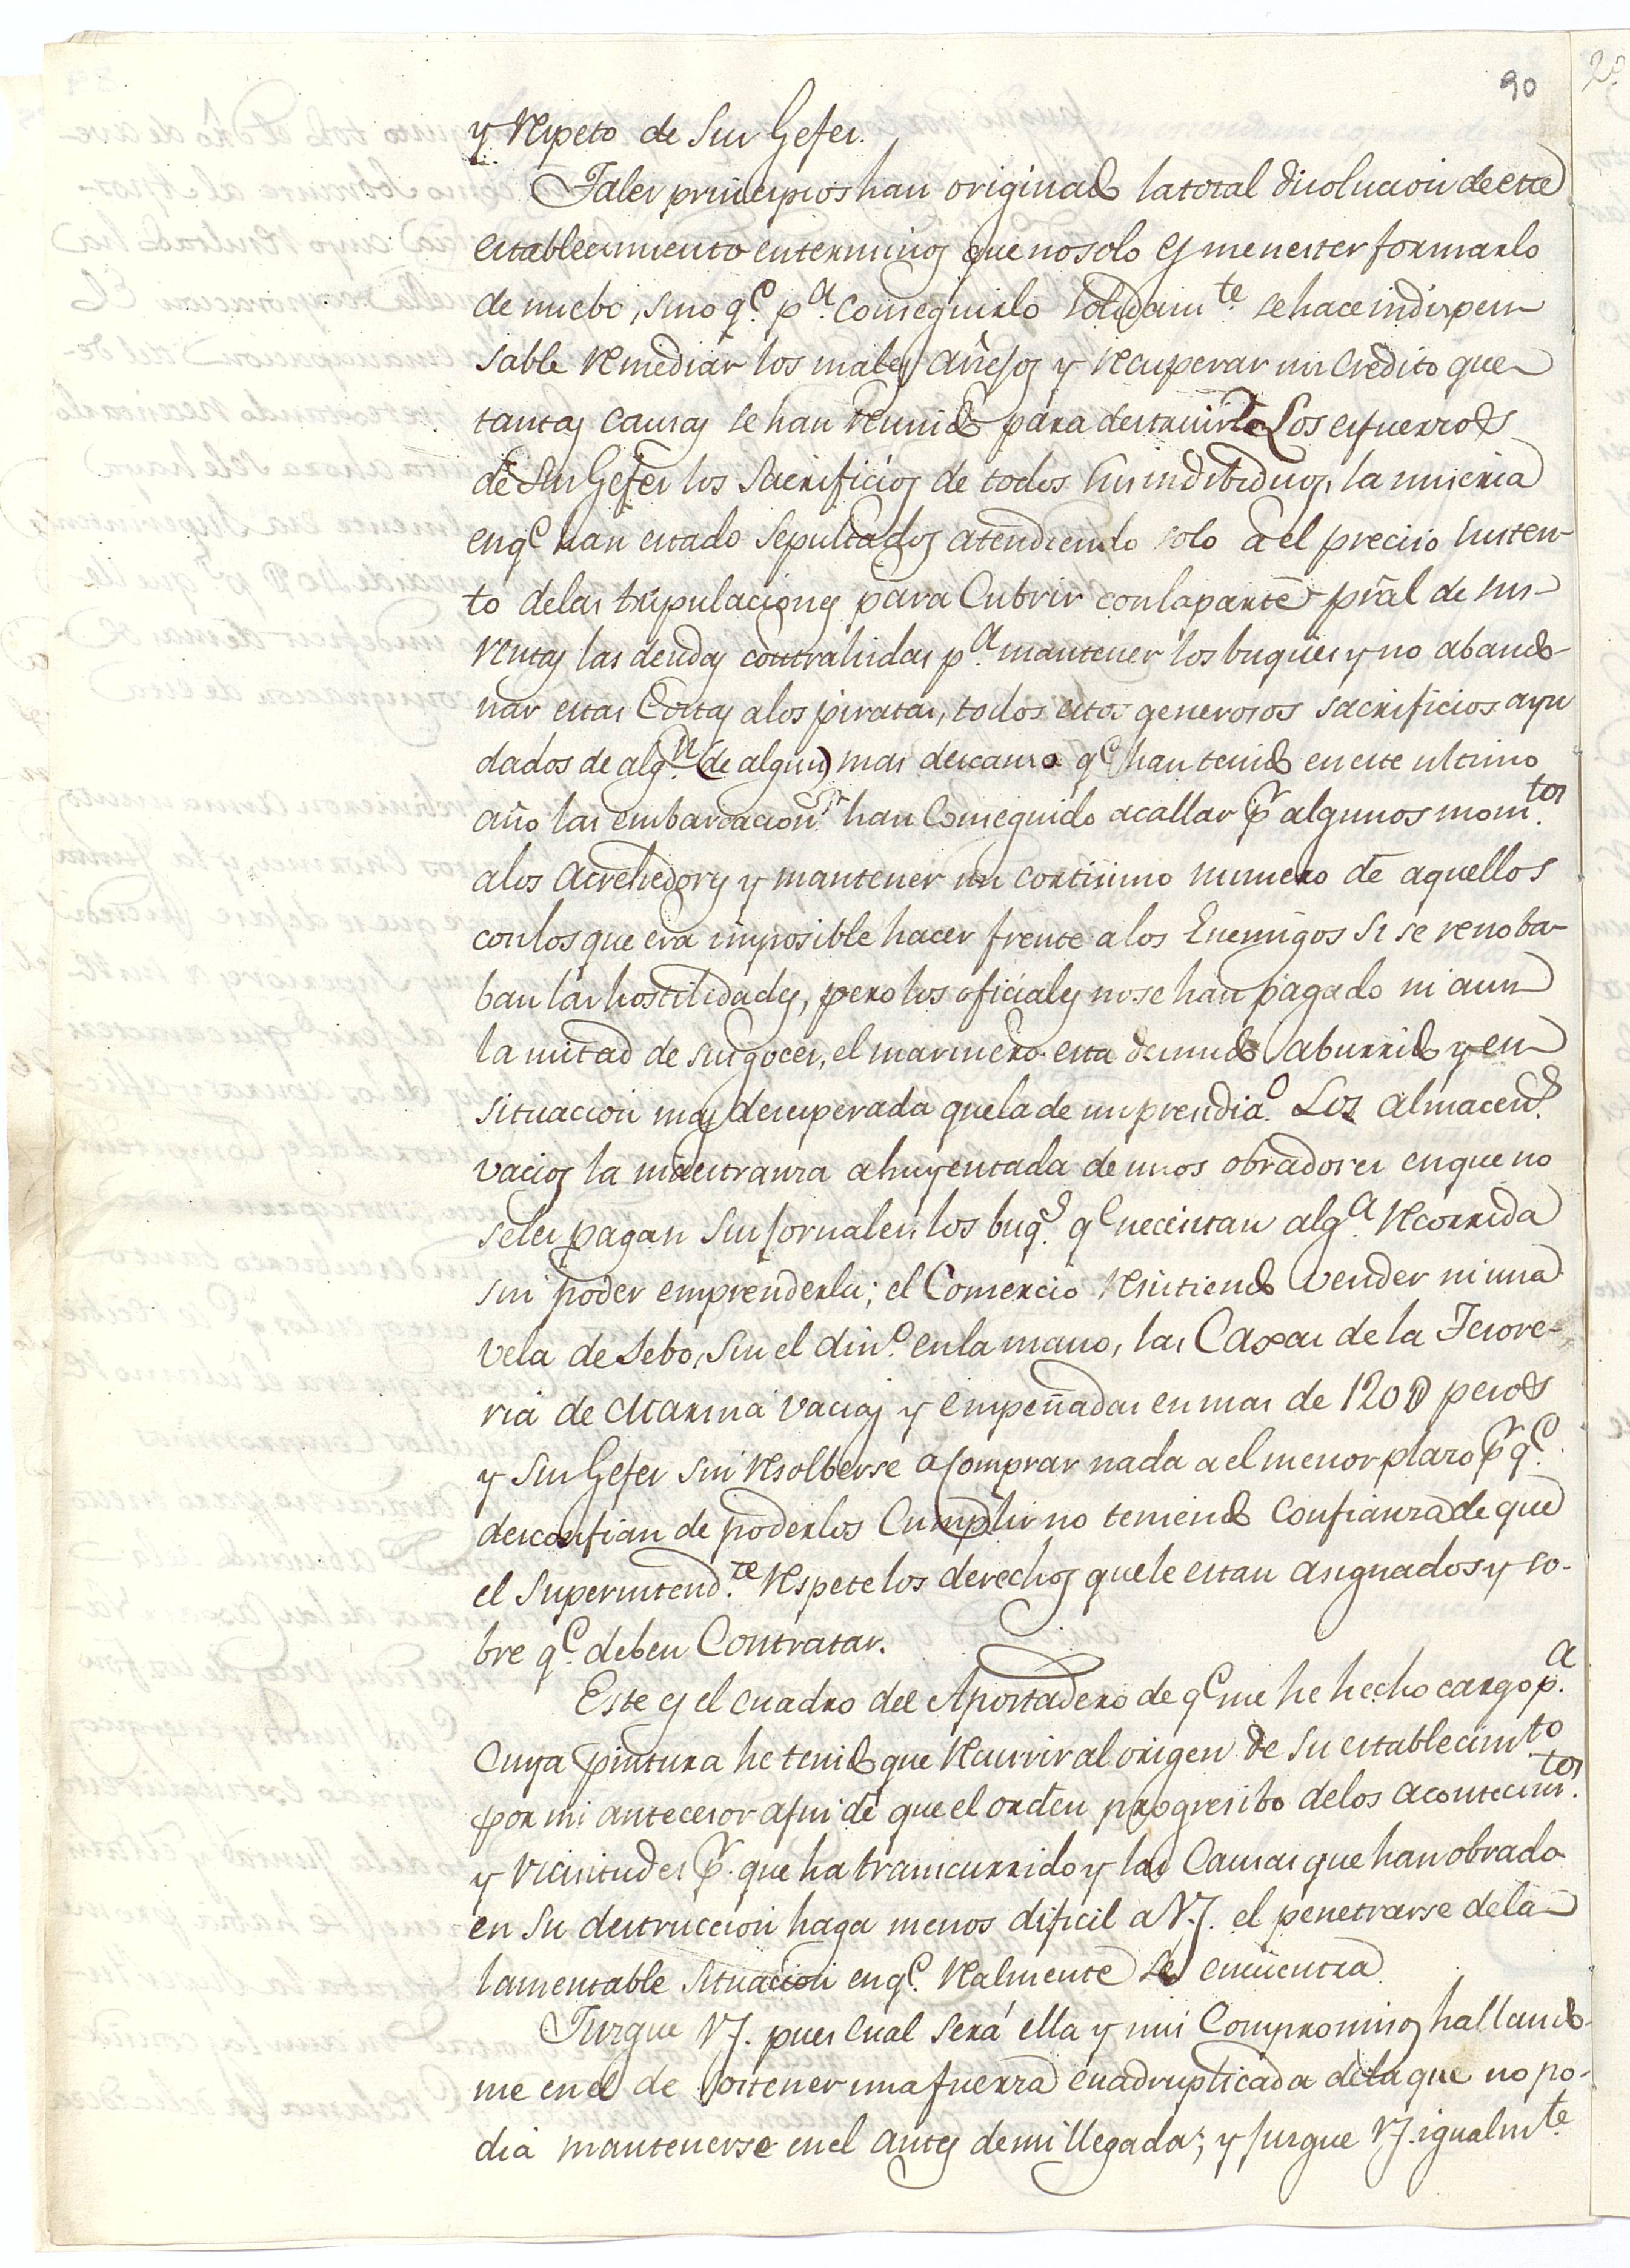 90
y respeto de sus Gefes.
Tales principios han originado la total disolucion de este
establecimiento en terminos que no solo es menester formarlo
de nuebo, sino q.e p.a conseguirlo solidam.te se hace indispen
sable remediar los males añejos y recuperar un credito que
tantas causas se han reunido para destruirlo Los esfuerzos
de sus Gefes los sacrificios de todos sus indibiduos, la miseria
en q.e han estado sepultados atendiendo solo a el preciso susten-
to de las tripulaciones para Cubrir con la parte pral de sus
rentas las deudas contrahidas p.a mantener los buques y no abando-
nar estas Costas a los piratas, todos estos generosos sacrificios ayu
dados de alg.n (de algun) mas descanso q.e han tenido en este ultimo
año las embarcacion.s han Conseguido acallar p.r algunos mom.tos
a los Acrehedores y mantener un cortisimo numero de aquellos
con los que era imposible hacer frente a los Enemigos si se renoba-
ban las hostilidades, pero los oficiales no se han pagado ni aun
la mitad de sus goces, el marinero esta desnudo aburrido y en
situacion mas desesperada que la de un presidia.o Los Almacen.s
vacios la maestranza ahuyentada de unos obradores en que no
se les pagan sus jornales, los buq.s q.e necesitan alg.a recorrida
sin poder emprenderla; el Comercio resistiendo vender ni una
vela de sebo, sin el din.o en la mano, las Caxas de la Tesore-
ria de Marina vacias y empeñadas en mas de 120 D pesos
y sus Gefes sin resolberse a Comprar nada a el menor plazo p.r q.e
desconfian de poderlos Cumplir no teniendo Confianza de que
el Superintend.te respete los derechos que le estan asignados y so-
bre q.e deben Contratar.
Este es el cuadro del Apostadero de q.e me he hecho cargo p.a
Cuya pintura he tenido que recurrir al origen de su establecim.to
por mi antecesor a fin de que el orden progresibo de los acontecim.tos
y vicisitudes p.r que ha transcurrido y las Causas que han obrado
en su destruccion haga menos dificil a V.J. el penetrarse de la
lamentable situacion en q.e realmente se encuentra
Juzgue V.J. pues Cual será ella y mis Compromisos hallando-
me en el de sostener una fuerza cuadruplicada de la que no po-
dia mantenerse en el antes de mi llegada; y juzgue V.J. igualm.te